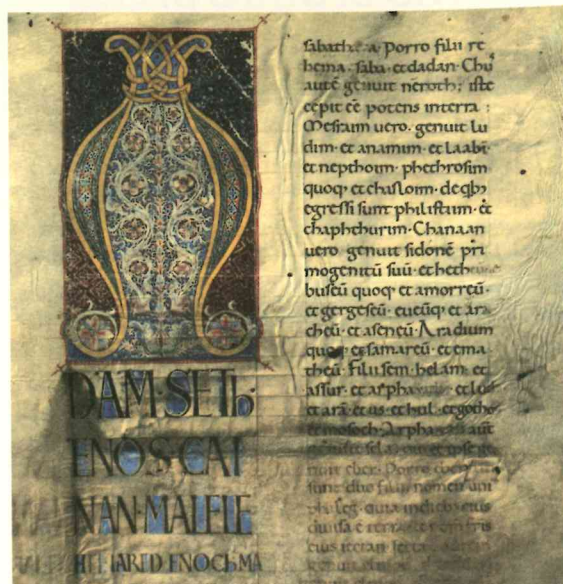 A
DAM·SETh·
ENOS·CAI
NAN·MALELE
hEL IARED ENOCh MA
sabatha·a· Porro filii re
hema· saba· et dadan· Chu
autē genuit neroth; iste
cepit eē potens in terra:
Mesraim uero· genuit lu
dim· et anamim· et laabī
et nepthoim· phethrosim
quoq; et chasloim· de qb;
egressi sunt philistiim· et
chaphthurim· Chanaan
uero genuit sidonē pri
mogenitū suū· et heth
buseū quoq; et amorreū·
et gergeseū· eueūq; et ara
cheū· et aseneū· Aradium
quoq; et samareū· et ema
theū· Filii sem· helam· et
assur· et arpha et lud
et arā· et us· et hul· et gotho
et mosoch· Arpha autē
genuit sela· qui et ipse ge
nuit eber· Porro eber
sunt duo filii nomen uni
phaleg· quia in dieb; eius
diuisa ē terra· et nom fris
eius iectan·